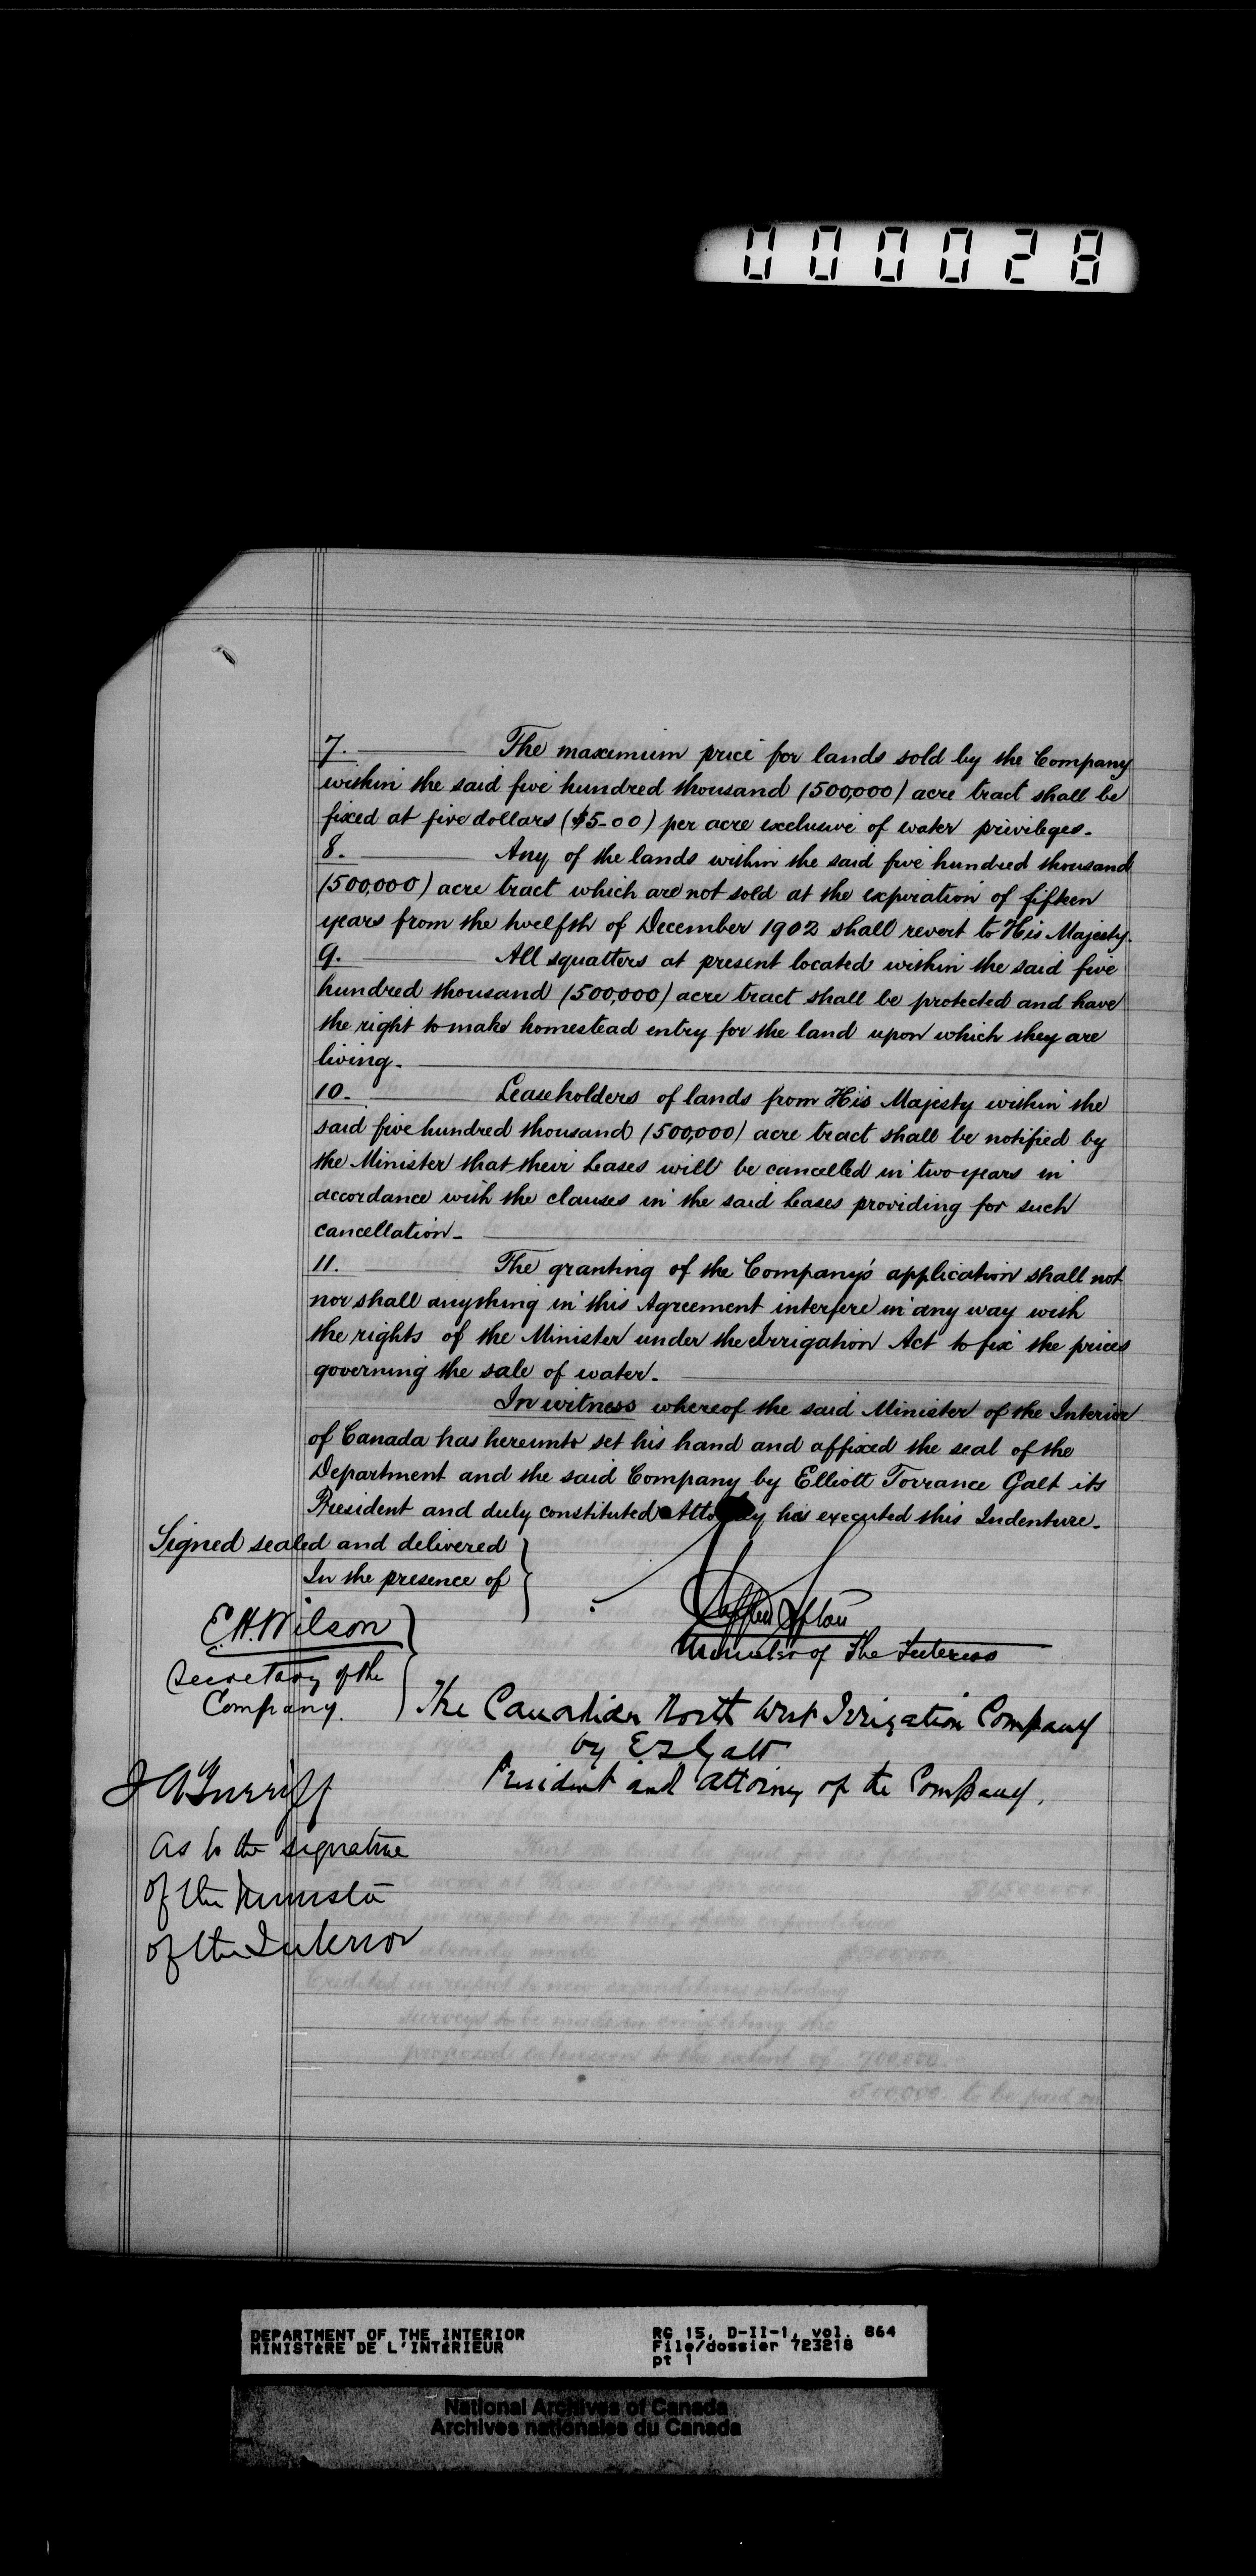 000028
7. The maximum price for lands sold by the Company
within the said five hundred thousand (500,000) acre tract shall be
fixed at five dollars ($5-00) per acre exclusive of water privileges.
8. Any of the lands within the said five hundred thousand
(500,000) acre tract which are not sold at the expiration of fifteen
years from the twelfth of December 1902 shall revert to His Majesty.
9. All squatters at present located within the said five
hundred thousand (500,000) acre tract shall be protected and have
the right to make homestead entry for the land upon which they are
living.
10. Leaseholders of lands from His Majesty within the
said five hundred thousand (500,000) acre tract shall be notified by
the Minister that their leases will be cancelled in two years in
accordance with the clauses in the said leases providing for such
cancellation.
11. The granting of the Company's application shall not
nor shall anything in this Agreement interfere in any way with
the rights of the Minister under the Irrigation Act to fix the prices
governing the sale of water.
In witness whereof the said Minister of the Interior
of Canada has hereunto set his hand and affixed the seal of the
Department and the said Company by Elliott Torrance Galt its
President and duly constituted Attorney has executed this Indenture.
Signed sealed and delivered
In the presence of
E.H. Wilson
Secretary of the
Company.
Clifford Sifton
Minister of the Interior
The Canadian North West Irrigation Company
by E T Galt
President and Attorney of the Company.
J A Turriff
as to the signature
of the Minister
of the Interior
already made $300,000.
Credited in respect to new expenditures including
surveys to be made in completing the
proposed extension to the extent of 700,000.
500,000. to be paid
DEPARTMENT OF THE INTERIOR
MINISTÈRE DE L'INTÉRIEUR
RG 15, D-II-1, vol. 864
File/dossier 723218
pt 1
National Archives of Canada
Archives nationales du Canada